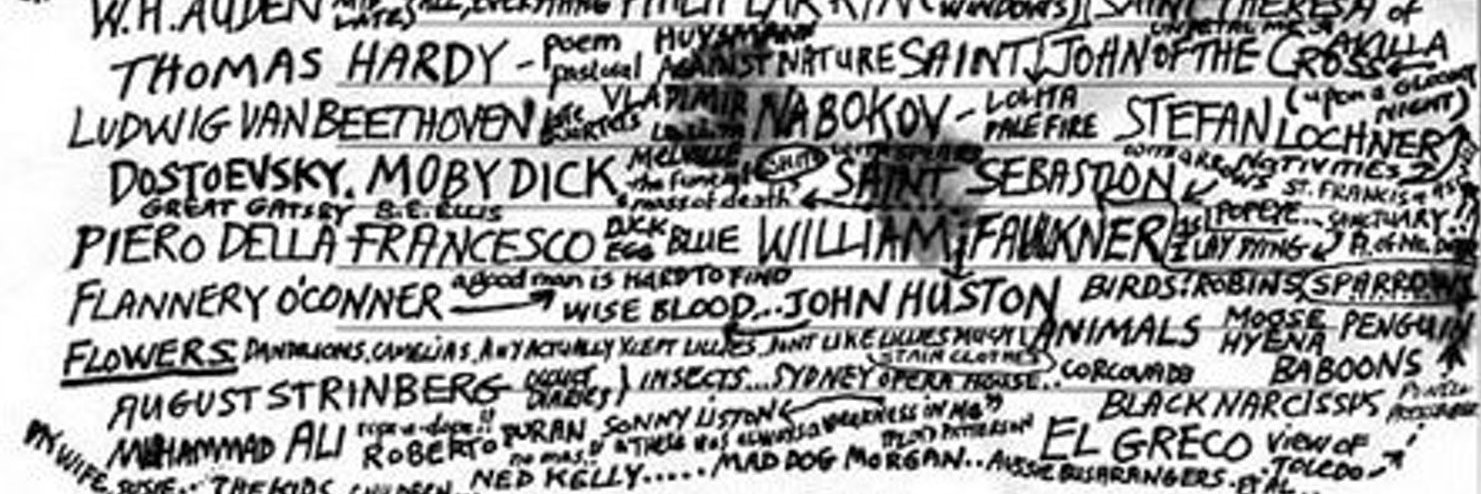 W.H. AUDEN ALL, EVERYTHING PHILIP LARKIN WINDOWS) SAINT THERESA of
HUYSMANN
THOMAS HARDY - poem pastoral AGAINST NATURE SAINT JOHN OF THE CROSS
AKILLA
(upon a gloomy NIGHT)
LUDWIG VAN BEETHOVEN VLADIMIR NABOKOV - LOLITA PALE FIRE STEFAN LOCHNER
DOSTOEVSKY. MOBY DICK MELVILLE SAINT SEBASTION NATIVITIES
a mass of death ST. FRANCIS
GREAT GATSBY B.E. ELLIS
PIERO DELLA FRANCESCO DUCK EGG BLUE WILLIAM FAULKNER AS I LAY DYING POPEYE... SANCTUARY!!
a good man is HARD TO FIND
FLANNERY O'CONNER WISE BLOOD... JOHN HUSTON BIRDS: ROBINS SPARROWS
ANIMALS MOOSE HYENA PENGUIN
FLOWERS DANDELIONS, CAMELIAS, ANY ACTUALLY XCEPT LILLIES, DONT LIKE LILLIES MUCH
STAIN CLOTHES
AUGUST STRINBERG OCCULT DIARIES) INSECTS... SYDNEY OPERA HOUSE.. CORCOVADO BABOONS
BLACK NARCISSUS
MUHAMMAD ALI rope-a-dope!! ROBERTO DURAN no mas.. SONNY LISTON
FLOYD PATTERSON EL GRECO VIEW OF TOLEDO
MY WIFE SUSIE.. THE KIDS CHILDREN... NED KELLY...... MAD DOG MORGAN.. AUSSIE BUSHRANGERS. ET AL